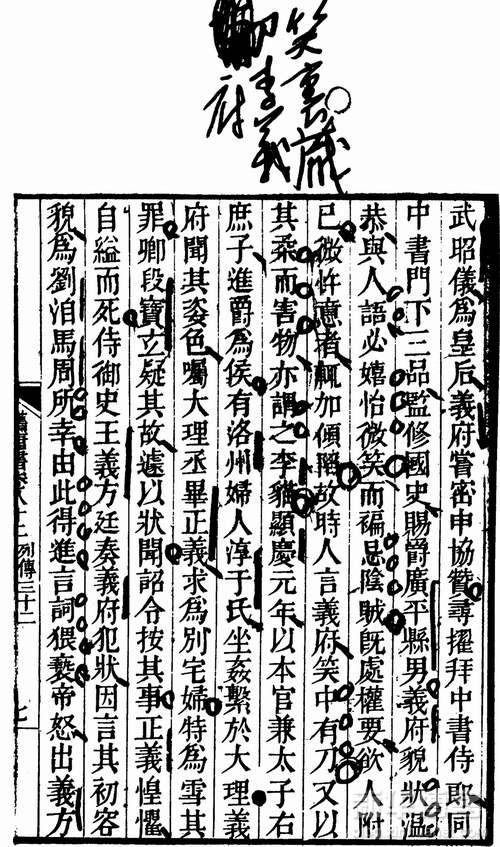 笑裏藏
刀李義
府
武昭儀爲皇后義府嘗密申協贊尋擢拜中書侍郎同
中書門下三品監修國史賜爵廣平縣男義府貌狀温
恭與人語必嬉怡微笑而褊忌陰賊既處權要欲人附
己微忤意者輒加傾陷故時人言義府笑中有刀又以
其柔而害物亦謂之李貓顯慶元年以本官兼太子右
庶子進爵爲侯有洛州婦人淳于氏坐姦繫於大理義
府聞其姿色囑大理丞畢正義求爲別宅婦特爲雪其
罪卿段寶玄疑其故遽以狀聞詔令按其事正義惶懼
自縊而死侍御史王義方廷奏義府犯狀因言其初容
貌爲劉洎馬周所幸由此得進言詞猥褻帝怒出義方
舊唐書卷八十二 列傳三十二 七